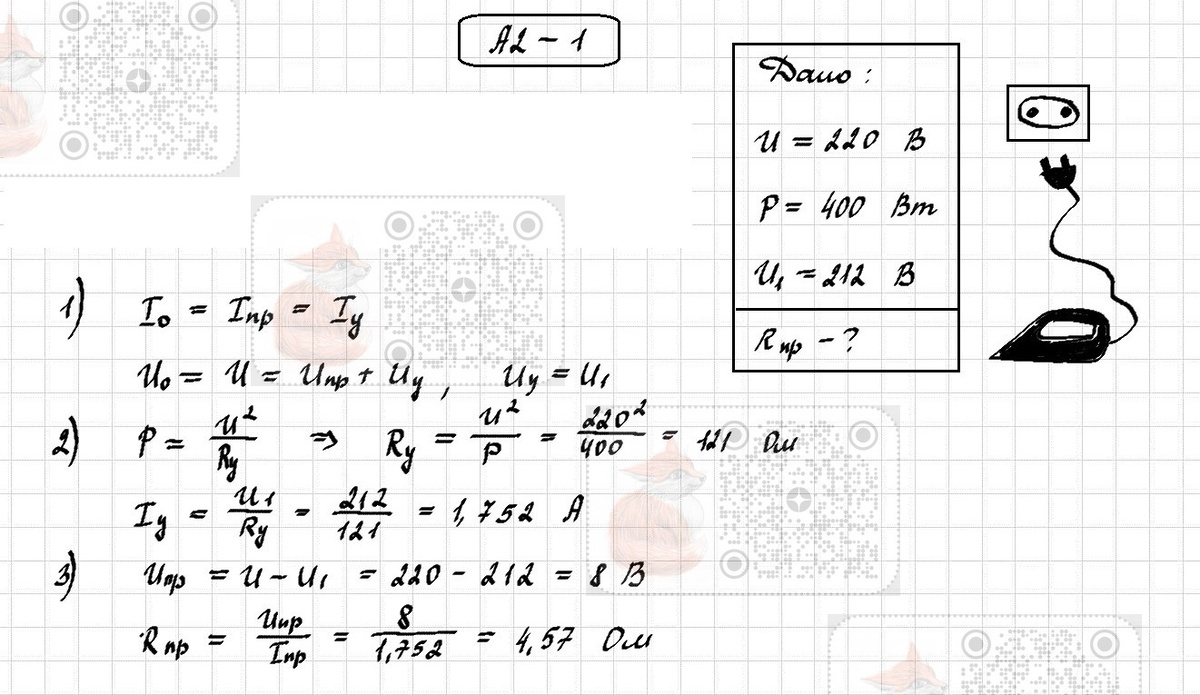 A2 - 1
Дано:
U = 220 В
P = 400 Вт
U₁ = 212 В
Rпр - ?
1) I₀ = Iпр = Iу
U₀ = U = Uпр + Uу, Uу = U₁
2) P = U²/Rу ⇒ Rу = U²/P = 220²/400 = 121 Ом
Iу = U₁/Rу = 212/121 = 1,752 А
3) Uпр = U - U₁ = 220 - 212 = 8 В
Rпр = Uпр/Iпр = 8/1,752 = 4,57 Ом